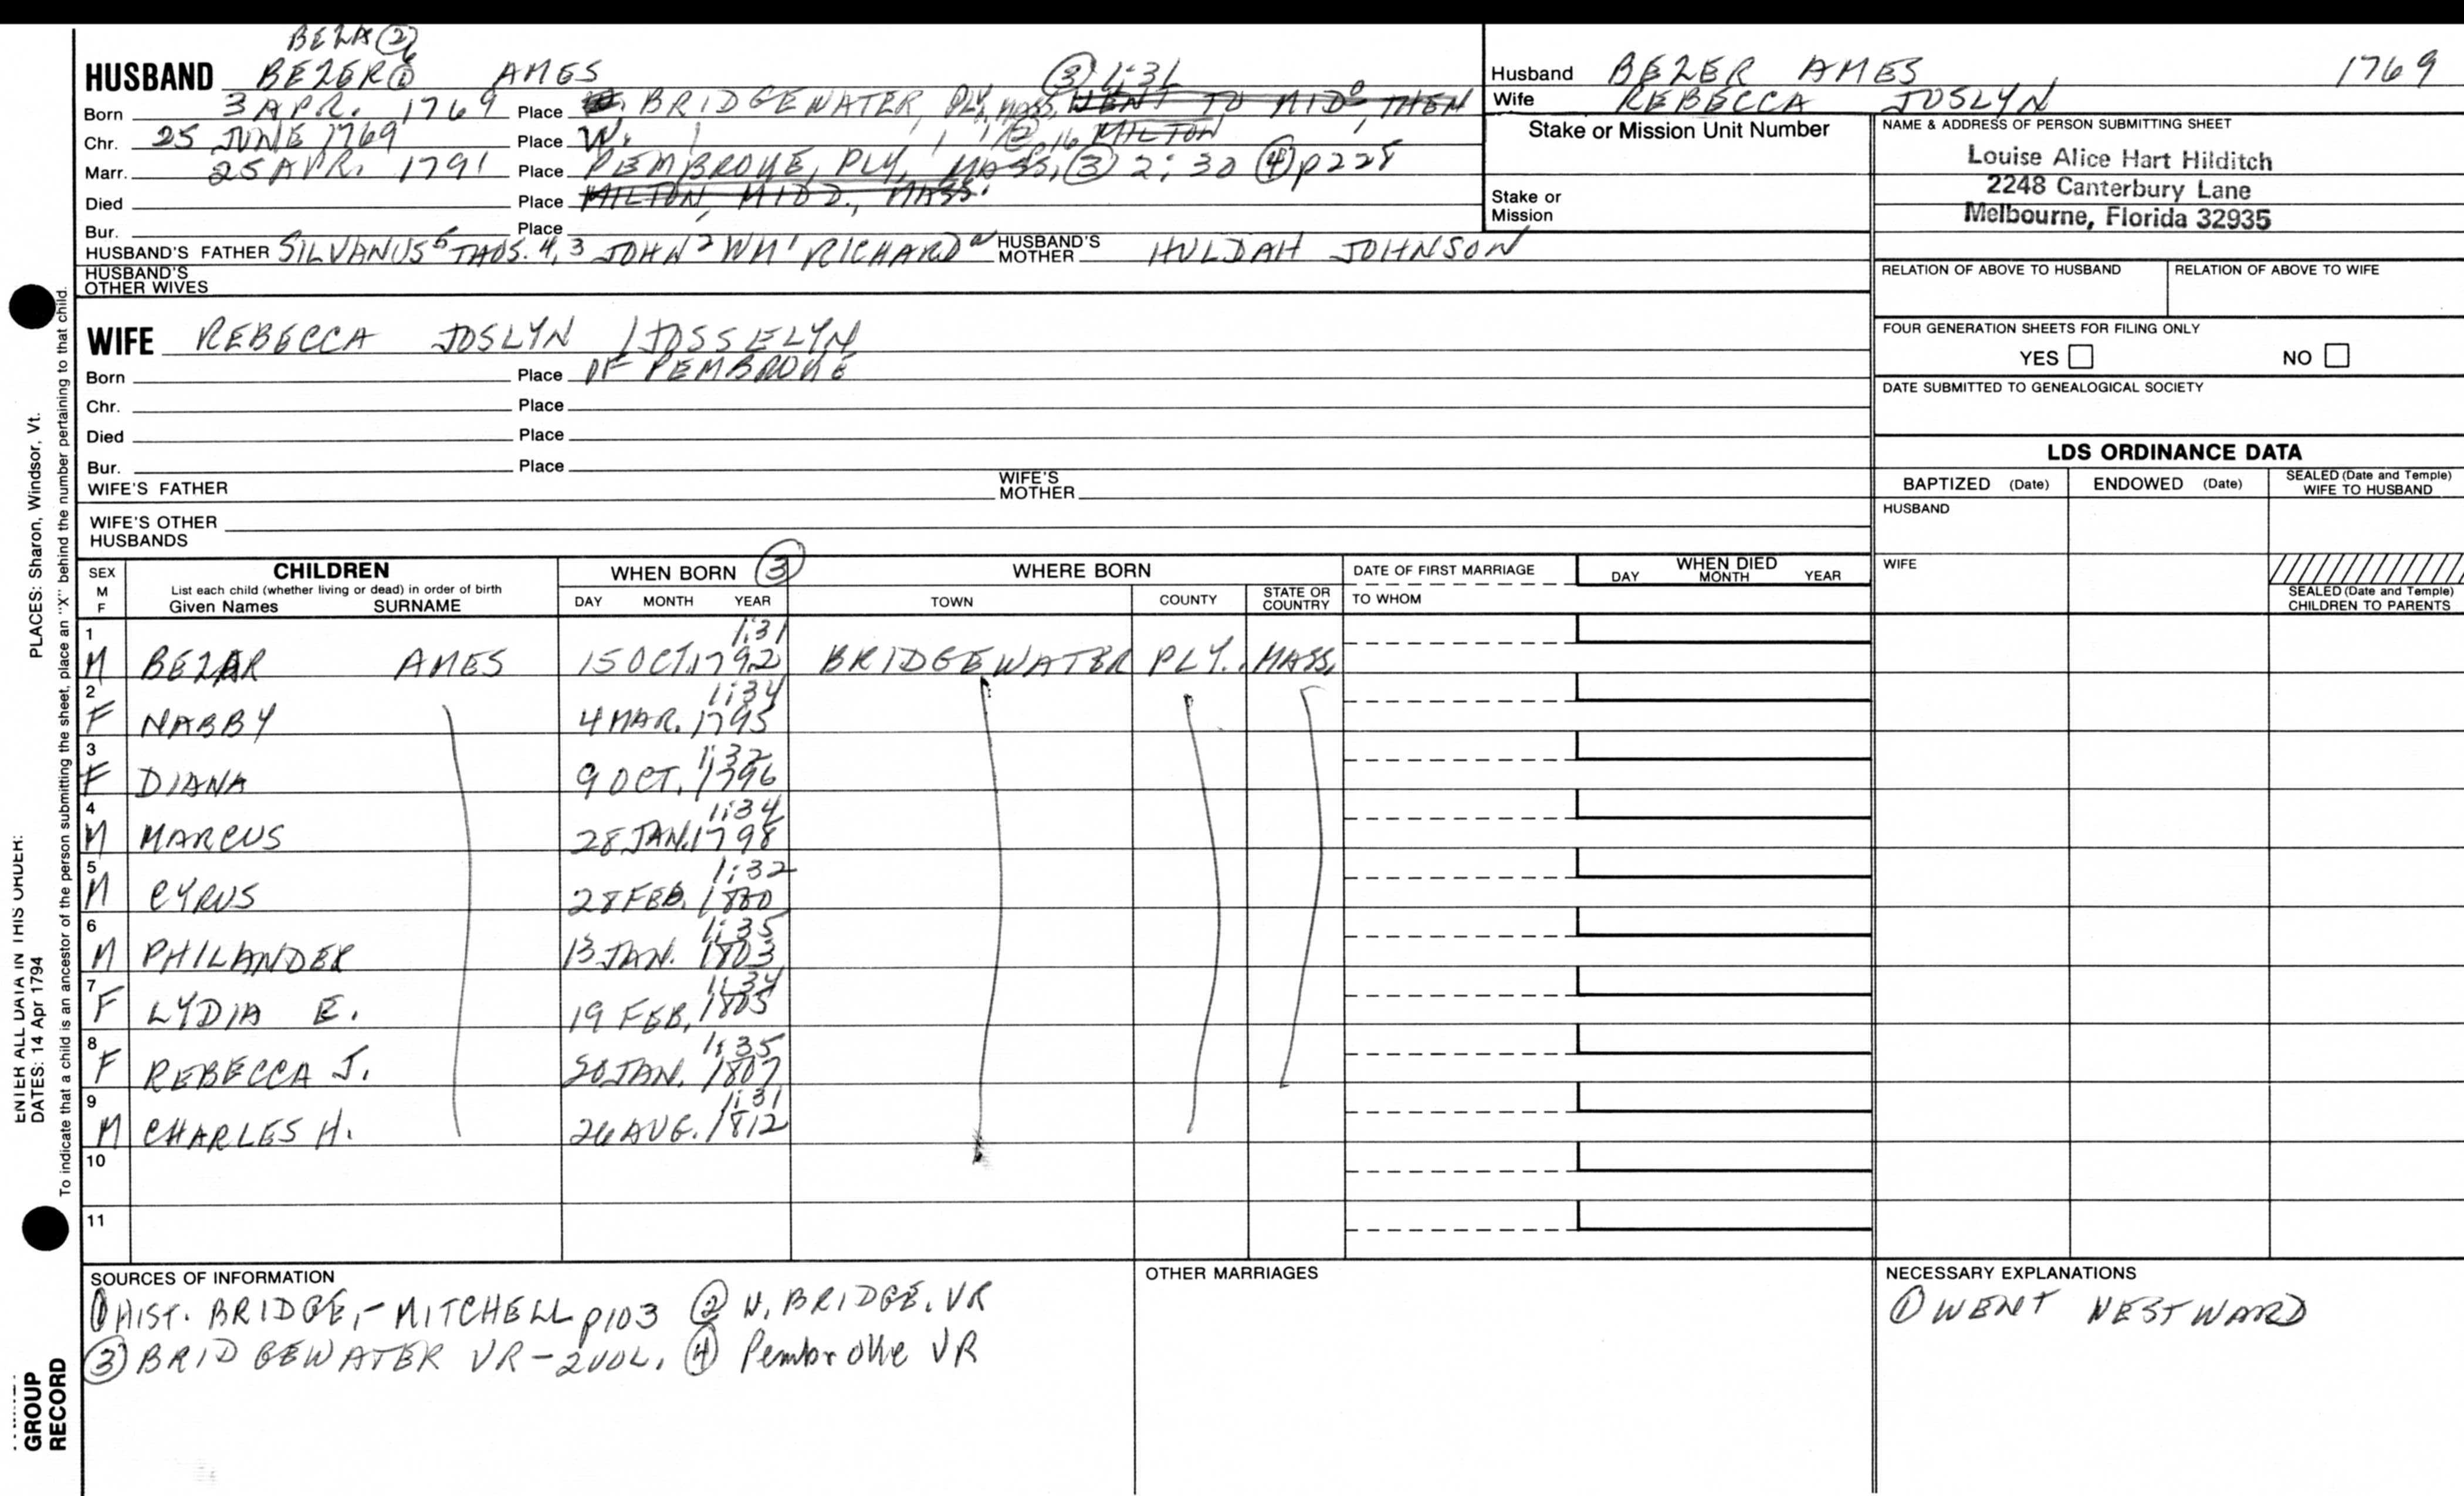 BELA ②
HUSBAND BEZER① 6 AMES ③ 1:31
Born 3 APR. 1769 Place BRIDGEWATER, PLY, MASS, WENT TO MIDD, THEN
Chr. 25 JUNE 1769 Place W. ② p.16 MILTON
Marr. 25 APR. 1791 Place PEMBROKE, PLY, MASS, ③ 2:30 ④ p228
Died Place MILTON, MIDD., MASS.
Bur. Place
HUSBAND'S FATHER SILVANUS 5 THOS. 4,3 JOHN 2 WM 1 RICHARD a HUSBAND'S MOTHER HULDAH JOHNSON
HUSBAND'S
OTHER WIVES
WIFE REBECCA JOSLYN / JOSSELYN
Born Place OF PEMBROKE
Chr. Place
Died Place
Bur. Place
WIFE'S FATHER WIFE'S MOTHER
WIFE'S OTHER
HUSBANDS
Husband BEZER AMES 1769
Wife REBECCA JOSLYN
Stake or Mission Unit Number
Stake or
Mission
NAME & ADDRESS OF PERSON SUBMITTING SHEET
Louise Alice Hart Hilditch
2248 Canterbury Lane
Melbourne, Florida 32935
RELATION OF ABOVE TO HUSBAND RELATION OF ABOVE TO WIFE
FOUR GENERATION SHEETS FOR FILING ONLY
YES NO
DATE SUBMITTED TO GENEALOGICAL SOCIETY
LDS ORDINANCE DATA
BAPTIZED (Date) ENDOWED (Date) SEALED (Date and Temple)
WIFE TO HUSBAND
HUSBAND
WIFE
SEALED (Date and Temple)
CHILDREN TO PARENTS
SEX
M
F
CHILDREN
List each child (whether living or dead) in order of birth
Given Names SURNAME
WHEN BORN ③
DAY MONTH YEAR
WHERE BORN
TOWN COUNTY STATE OR COUNTRY
DATE OF FIRST MARRIAGE
TO WHOM
WHEN DIED
DAY MONTH YEAR
1 1:31
M BEZAR AMES 15 OCT. 1792 BRIDGEWATER PLY. MASS.
2 1:34
F NABBY 4 MAR. 1795
3 1:32
F DIANA 9 OCT. 1796
4 1:34
M MARCUS 28 JAN. 1798
5 1:32
M CYRUS 28 FEB. 1800
6 1:35
M PHILANDER 13 JAN. 1803
7 1:34
F LYDIA E. 19 FEB. 1805
8 1:35
F REBECCA J. JAN. 1807
9 1:31
M CHARLES H. 26 AUG. 1812
10
11
SOURCES OF INFORMATION
① HIST. BRIDGE,- MITCHELL p103 ② W. BRIDGE. VR
③ BRIDGEWATER VR - 2 VOL. ④ Pembroke VR
OTHER MARRIAGES
NECESSARY EXPLANATIONS
① WENT WESTWARD
ENTER ALL DATA IN THIS ORDER:
DATES: 14 Apr 1794 PLACES: Sharon, Windsor, Vt.
To indicate that a child is an ancestor of the person submitting the sheet, place an "X" behind the number pertaining to that child.
GROUP
RECORD